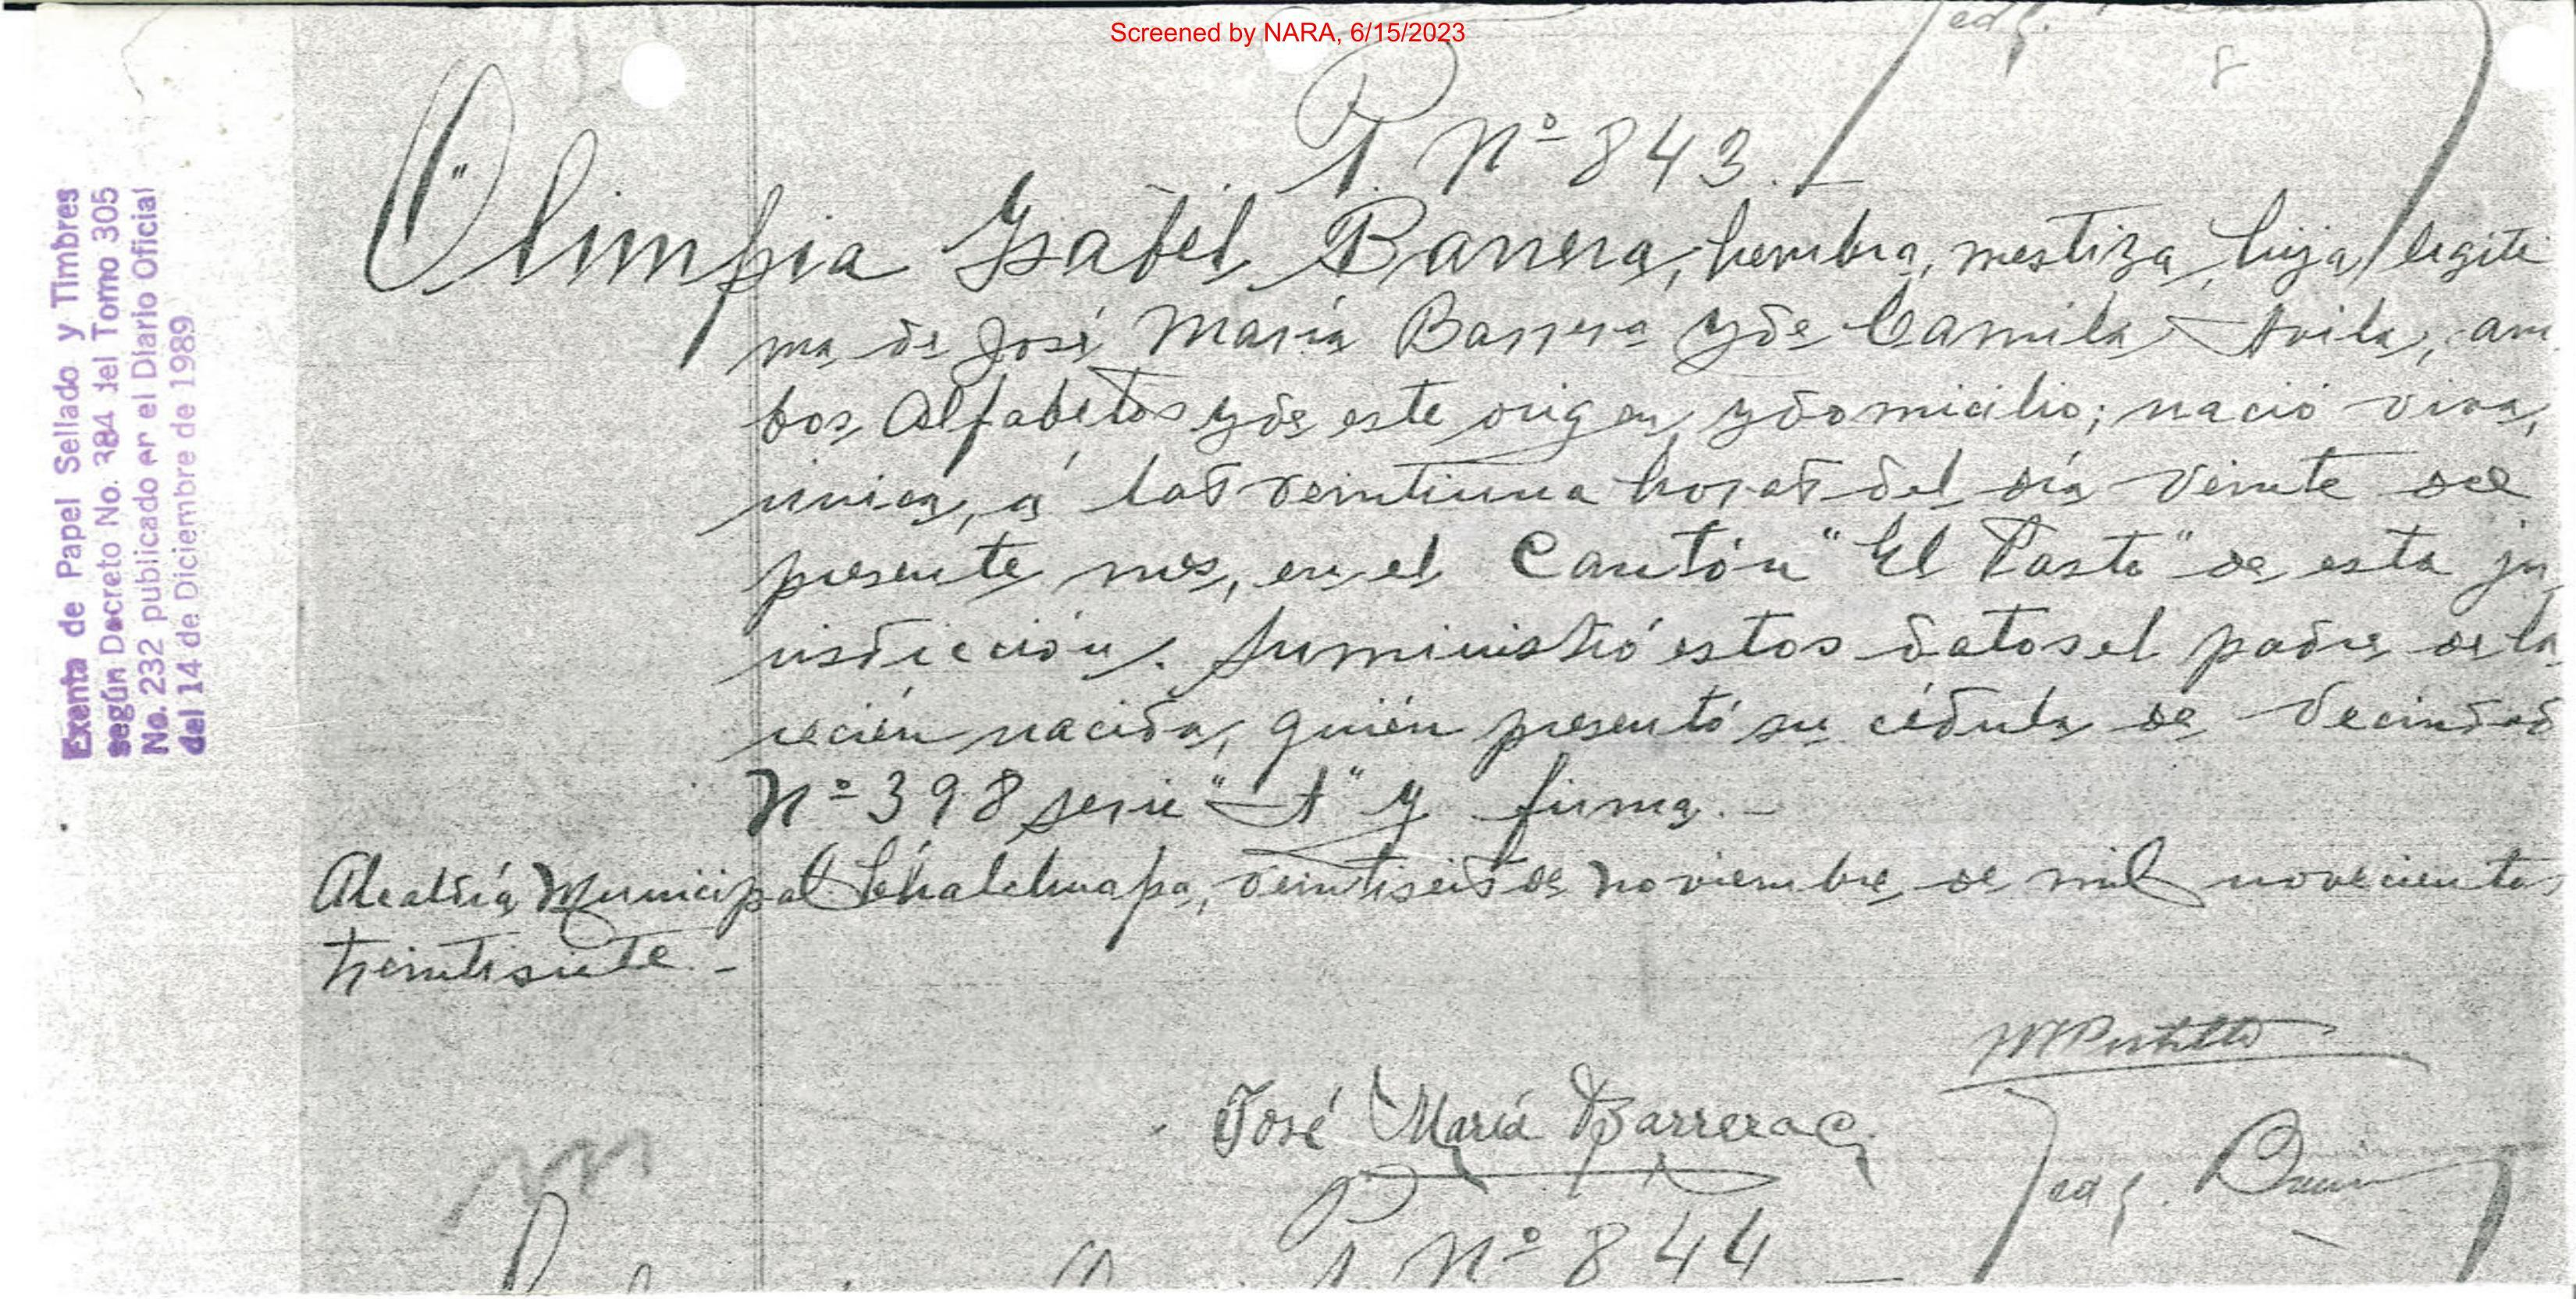 Screened by NARA, 6/15/2023
8
Exenta de Papel Sellado y Timbres
según Decreto No. 384 del Tomo 305
No. 232 publicado en el Diario Oficial
del 14 de Diciembre de 1989
P. Nº 843.
Olimpia Isabel Barrera, hembra, mestiza, hija legiti
ma de José María Barrera y de Camila Avila, am
bos alfabetos y de este origen y domicilio; nació viva,
única, á las veintiuna horas del día veinte del
presente mes, en el Cantón "El Paste" de esta ju
risdicción. Suministró estos datos el padre de la
recién nacida, quién presentó su cédula de vecindad
Nº 398 serie "A" y firma.-
Alcaldía Municipal: Chalchuapa, veintiseis de noviembre de mil novecientos
treintisiete.-
MPortillo
José María Barrera C.
P. Nº 844